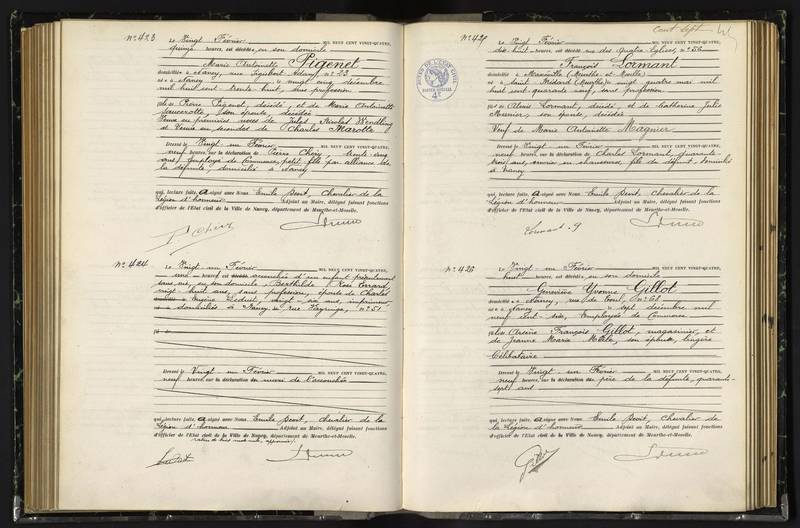 N° 423
Le Vingt Février MIL NEUF CENT VINGT-QUATRE,
quinze heures, est décédée en son domicile
Marie Antoinette Pigenet
domiciliée à Nancy, rue Sigisbert Adam, n° 23
née à Nancy le vingt cinq décembre
mil huit cent trente huit, sans profession
fille de Pierre Pigenet, décédé, et de Marie Antoinette
son épouse, décédée
Veuve en premières noces de Jules, Nicolas
et Veuve en secondes de Charles Marotte
Dressé le Vingt un Février MIL NEUF CENT VINGT-QUATRE,
neuf heures, sur la déclaration de Pierre Chéry, trente cinq
ans, employé de Commerce, petit fils par alliance de
la défunte, domicilié à Nancy
qui, lecture faite, a signé avec Nous Emile Chevalier de la
Légion d'honneur Adjoint au Maire, délégué faisant fonctions
d'officier de l'Etat civil de la Ville de Nancy, département de Meurthe-et-Moselle.
P. Chéry
N° 424
Le Vingt-un Février MIL NEUF CENT VINGT-QUATRE,
une heures est accouchée d'un enfant présentement
sans vie, en son domicile, Berthilde Rose
vingt huit ans, sans profession, épouse de Charles
Eugène vingt-six ans, imprimeur
domiciliés à Nancy, rue n° 51
Dressé le Vingt-un Février MIL NEUF CENT VINGT-QUATRE,
neuf heures, sur la déclaration du mari de l'accouchée
qui, lecture faite, a signé avec Nous Emile Chevalier de la
Légion d'honneur Adjoint au Maire, délégué faisant fonctions
d'officier de l'Etat civil de la Ville de Nancy, département de Meurthe-et-Moselle.
Cent Sept
N° 425
Le Vingt Février MIL NEUF CENT VINGT-QUATRE,
dix huit heures, est décédé rue des Quatre Eglises, n° 56
François Lormant
domicilié à Maxéville (Meurthe et Moselle)
né à Saint Médard (Meurthe) vingt quatre mai mil
huit cent quarante neuf, sans profession
fils de Alexis Lormant, décédé, et de Catherine Julie
son épouse, décédée
Veuf de Marie Antoinette Magnier
Dressé le Vingt un Février MIL NEUF CENT VINGT-QUATRE,
neuf heures, sur la déclaration de Charles Lormant, quarante-
trois ans, ouvrier en chaussures, fils du défunt, domicilié
à Nancy
qui, lecture faite, a signé avec Nous Emile Chevalier de la
Légion d'honneur Adjoint au Maire, délégué faisant fonctions
d'officier de l'Etat civil de la Ville de Nancy, département de Meurthe-et-Moselle.
N° 426
Le Vingt-un Février MIL NEUF CENT VINGT-QUATRE,
huit heures, est décédée en son domicile
Geneviève Yvonne Gillot
domiciliée à Nancy, rue de Toul, n° 61
née à Nancy le sept décembre mil
neuf cent six, Employée de Commerce
fille de Arsène François Gillot, magasinier, et
de Jeanne Marie son épouse, lingère
Célibataire
Dressé le Vingt-un Février MIL NEUF CENT VINGT-QUATRE,
neuf heures, sur la déclaration du père de la défunte, quarante-
sept ans
qui, lecture faite, a signé avec Nous Emile Chevalier de
la Légion d'honneur Adjoint au Maire, délégué faisant fonctions
d'officier de l'Etat civil de la Ville de Nancy, département de Meurthe-et-Moselle.
Gillot